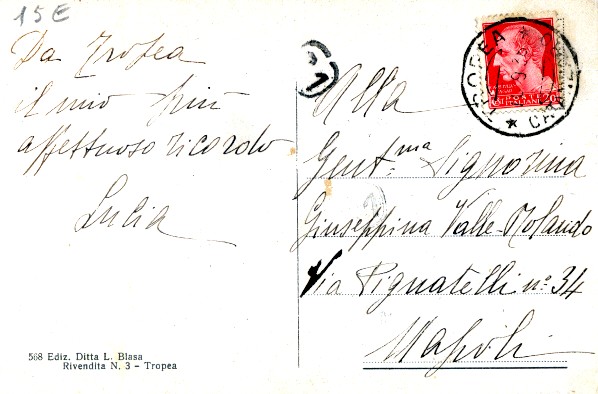 15 E
Da Tropea
il mio più
affettuoso ricordo
Lucia
568 Ediz. Ditta L. Blasa
Rivendita N. 3 - Tropea
POSTE
ITALIANE
TROPEA
Alla
Gent.ma Signorina
Giuseppina Valle-Molando
Via Pignatelli nº 34
Napoli